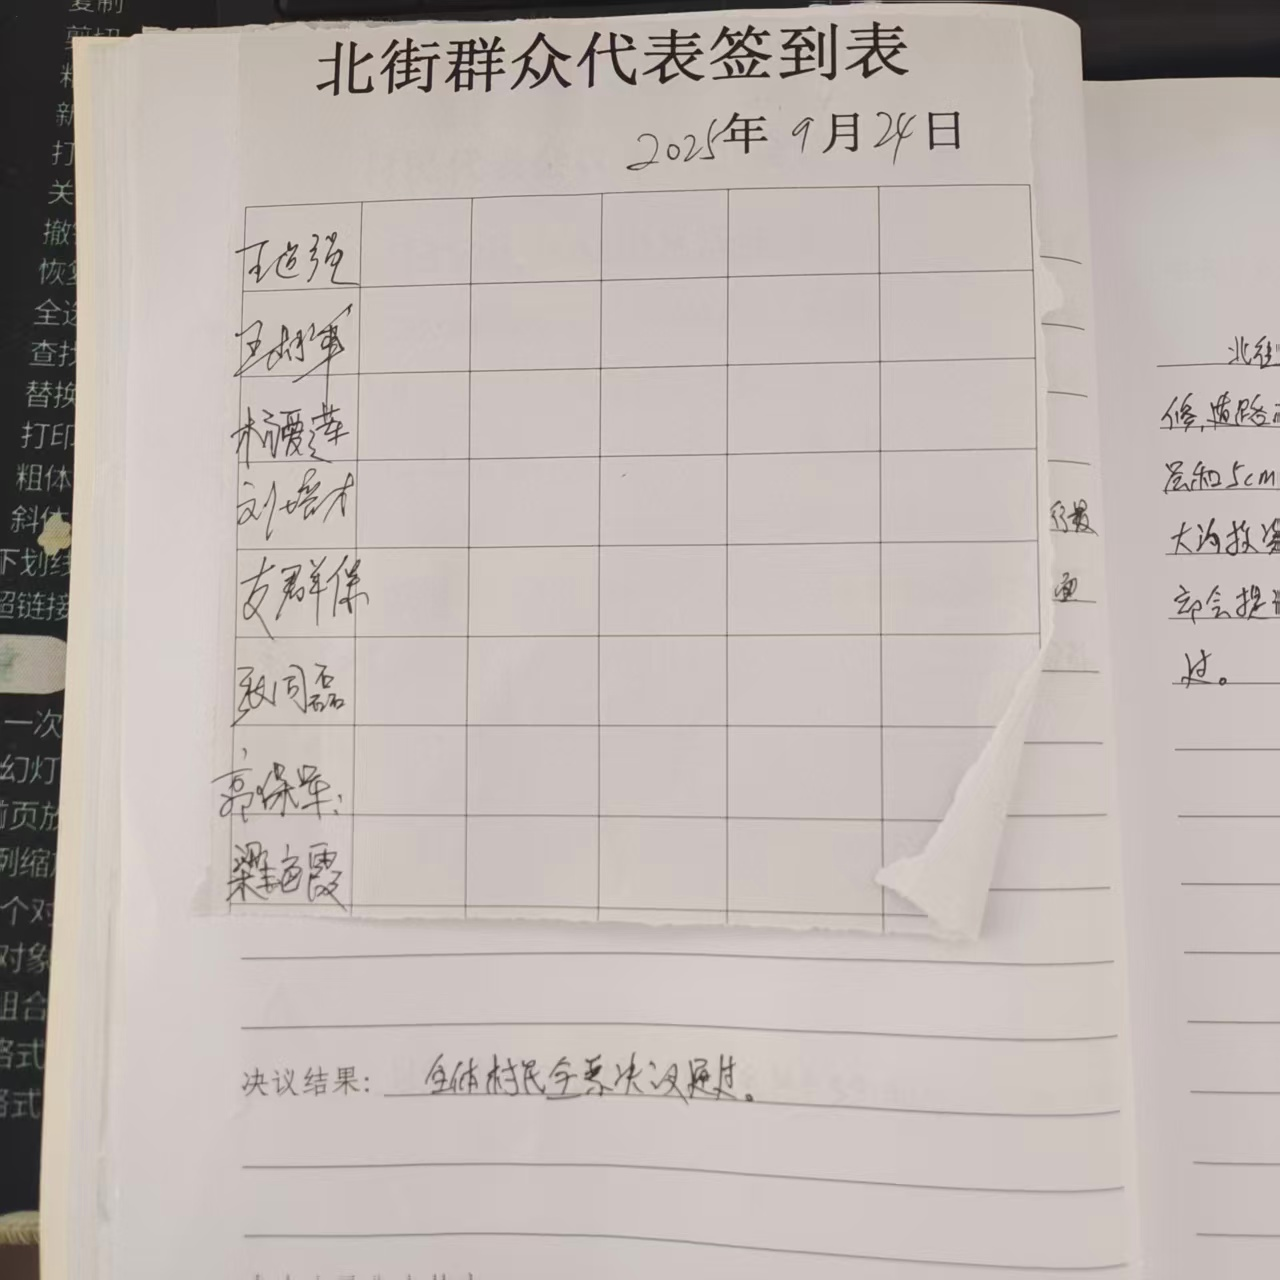 复制
剪切
新
打
关
恢复
全选
查找
替换
打印
粗体
斜体
下划线
超链接
一次
幻灯
前页放
例缩放
个对
对象
组合
格式
格式
北街群众代表签到表
2025年9月24日
王追强
刘培才
支群保
郭保军
梁海霞
决议结果: 全体村民全票决议通过。
北街
修,道路
层和5cm
大沟投资
部会提
过。